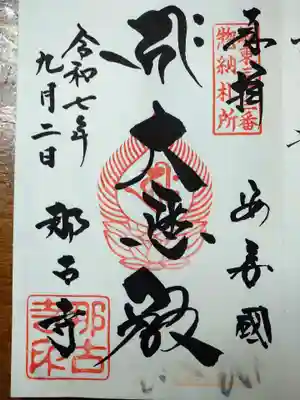 奉拝
安房國
惣納札所
大悲殿
令和七年
九月二日
那古寺
那古
寺印